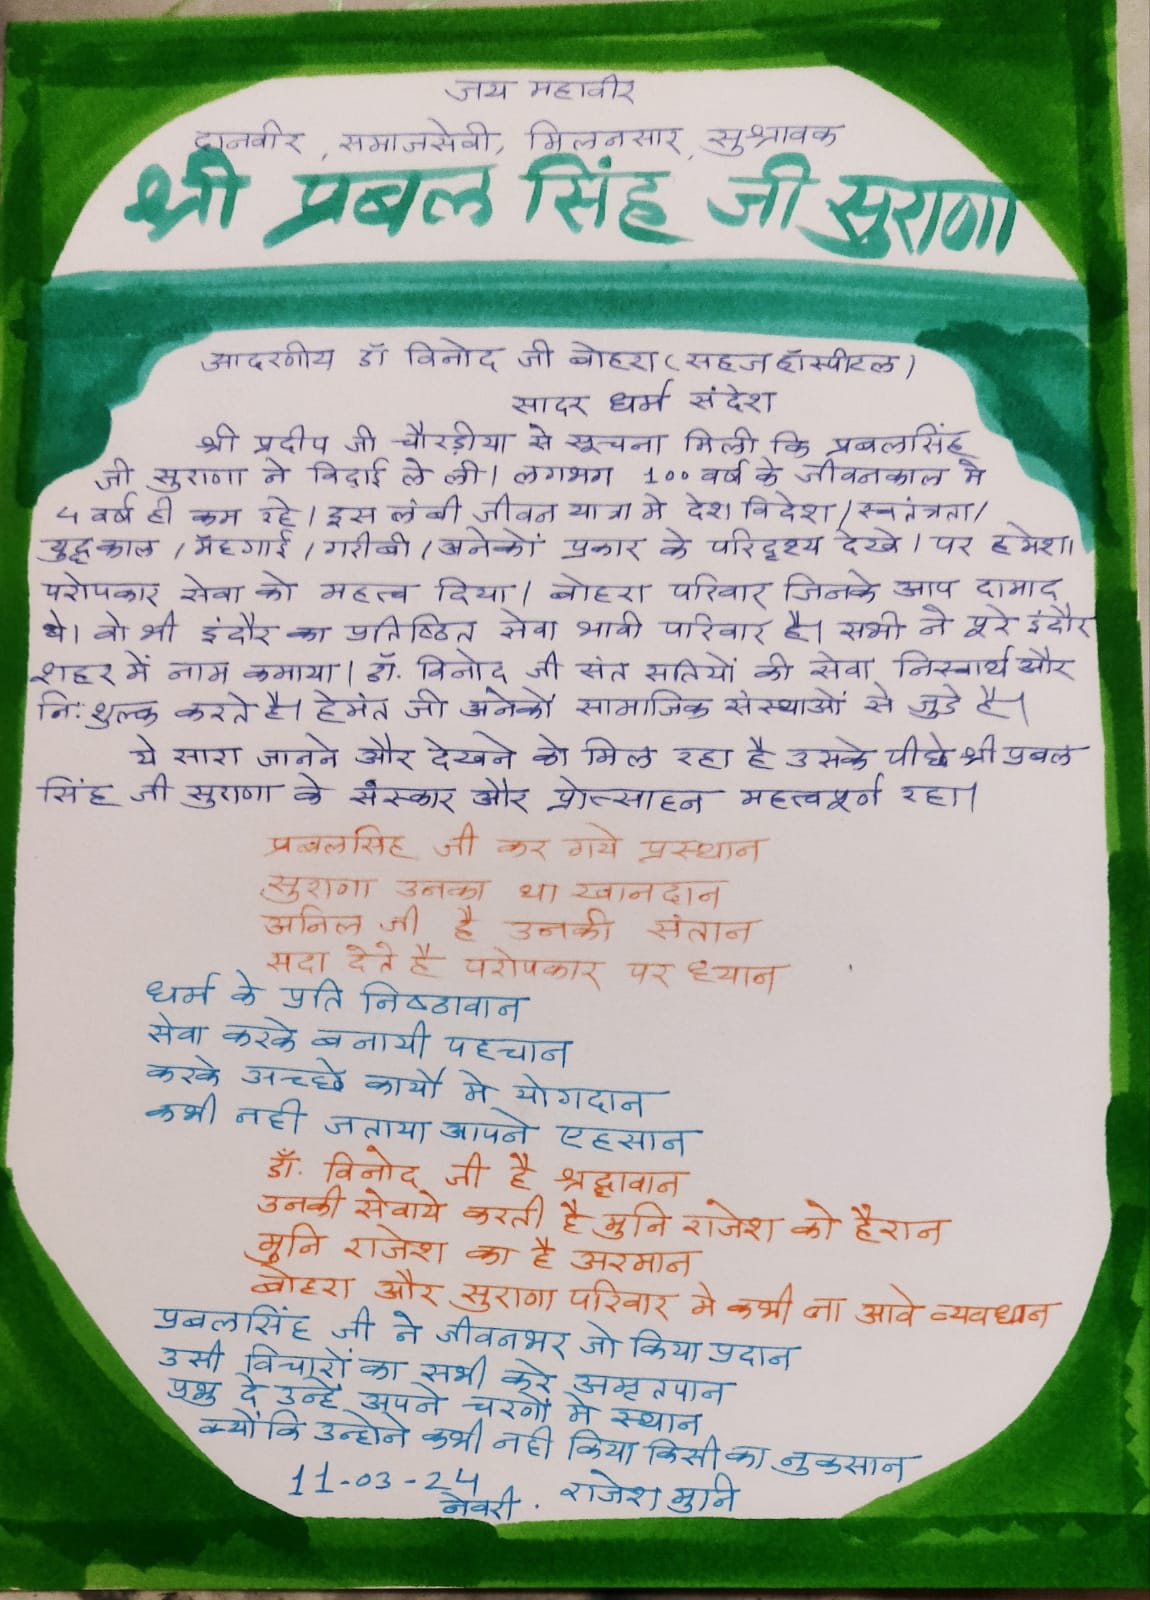 जय महावीर
दानवीर, समाजसेवी, मिलनसार, सुश्रावक
श्री प्रबल सिंह जी सुराणा
आदरणीय डॉ विनोद जी बोहरा (सहज हॉस्पीटल)
सादर धर्म संदेश
श्री प्रदीप जी चौरड़ीया से सूचना मिली कि प्रबलसिंह
जी सुराणा ने विदाई ले ली। लगभग 100 वर्ष के जीवनकाल मे
4 वर्ष ही कम रहे। इस लंबी जीवन यात्रा मे देश विदेश/स्वतंत्रता/
युद्धकाल /मॅहगाई/गरीबी/अनेकों प्रकार के परिदृश्य देखे। पर हमेशा
परोपकार सेवा को महत्व दिया। बोहरा परिवार जिनके आप दामाद
थे। वो भी इंदौर का प्रतिष्ठित सेवा भावी परिवार है। सभी ने पूरे इंदौर
शहर में नाम कमाया। डॉ. विनोद जी संत सतियों की सेवा निस्वार्थ और
नि:शुल्क करते है। हेमंत जी अनेकों सामाजिक संस्थाओं से जुडे है।
ये सारा जानने और देखने को मिल रहा है उसके पीछे श्री प्रबल
सिंह जी सुराणा के संस्कार और प्रोत्साहन महत्वपूर्ण रहा।
प्रबलसिंह जी कर गये प्रस्थान
सुराणा उनका था खानदान
अनिल जी है उनकी संतान
सदा देते है परोपकार पर ध्यान
धर्म के प्रति निष्ठावान
सेवा करके बनायी पहचान
करके अच्छे कार्यों मे योगदान
कभी नही जताया आपने एहसान
डॉ. विनोद जी है श्रद्धावान
उनकी सेवाये करती है मुनि राजेश को हैरान
मुनि राजेश का है अरमान
बोहरा और सुराणा परिवार मे कभी ना आवे व्यवधान
प्रबलसिंह जी ने जीवनभर जो किया प्रदान
उसी विचारों का सभी करे अमृतपान
प्रभु दे उन्हें अपने चरणों मे स्थान
क्योंकि उन्होने कभी नही किया किसी का नुकसान
11-03-24 राजेश मुनि
नेवरी.